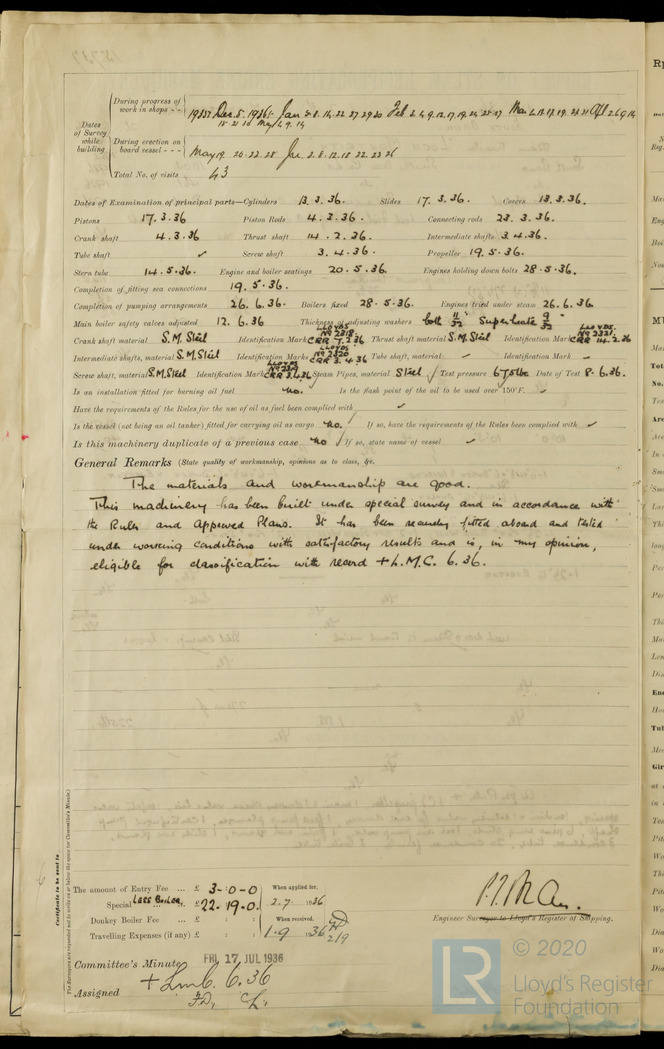 During progress of work in shops - - 1935: Dec. 5. 1936:- Jan 8. 14. 22 27 29 30 Feb 3. 4. 9. 12. 17. 19. 24 25 27 Mar 4. 13. 17. 19. 23 Apl 2. 6. 9. 14
May 4. 9. 14
Dates of Survey while building
During erection on board vessel - - - May 19. 20. 22. 28 Jne. 2. 8. 12. 18. 22. 23. 26
Total No. of visits 43
Dates of Examination of principal parts—Cylinders 13. 3. 36. Slides 17. 3. 36. Covers 13. 3. 36.
Pistons 17. 3. 36 Piston Rods 4. 3. 36. Connecting rods 23. 3. 36.
Crank shaft 4. 3. 36 Thrust shaft 14. 2. 36. Intermediate shafts 3. 4. 36.
Tube shaft ✓ Screw shaft 3. 4. 36. Propeller 19. 5. 36.
Stern tube 14. 5. 36. Engine and boiler seatings 20. 5. 36. Engines holding down bolts 28. 5. 36.
Completion of fitting sea connections 19. 5. 36.
Completion of pumping arrangements 26. 6. 36. Boilers fixed 28. 5. 36. Engines tried under steam 26. 6. 36.
Main boiler safety valves adjusted 12. 6. 36 Thickness of adjusting washers both 11/32 Superheater 9/32"
Crank shaft material S.M. Steel Identification Mark LLOYDS No 2318 CRR 7. 2. 36 Thrust shaft material S.M. Steel Identification Mark LLOYDS No 2321 CRR 14. 2. 36
Intermediate shafts, material S.M. Steel Identification Marks LLOYDS No 2320 CRR 3. 4. 36 Tube shaft, material ✓ Identification Mark ✓
Screw shaft, material S.M. Steel Identification Mark LLOYDS CRR 3. 4. 36 Steam Pipes, material Steel ✓ Test pressure 675 lbs Date of Test 8. 6. 36.
Is an installation fitted for burning oil fuel no. Is the flash point of the oil to be used over 150°F. ✓
Have the requirements of the Rules for the use of oil as fuel been complied with ✓
Is the vessel (not being an oil tanker) fitted for carrying oil as cargo no. If so, have the requirements of the Rules been complied with ✓
Is this machinery duplicate of a previous case no If so, state name of vessel ✓
General Remarks (State quality of workmanship, opinions as to class, &c.
The materials and workmanship are good.
This machinery has been built under special survey and in accordance with
the Rules and approved Plans. It has been securely fitted aboard and tested
under working conditions with satisfactory results and is, in my opinion,
eligible for classification with record + L.M.C. 6. 36.
Certificate to be sent to
The Surveyors are requested not to write on or below the space for Committee's Minute.
The amount of Entry Fee ... £ 3 - : 0 - 0 When applied for,
Special Less Boiler ... £ 22 . 19. 0. 2. 7. 1936
Donkey Boiler Fee ... £ : : When received,
Travelling Expenses (if any) £ : : 1. 9. 1936 2/9
Engineer Surveyor to Lloyd's Register of Shipping.
Committee's Minute FRI. 17 JUL 1936
Assigned + Lmc. 6. 36
F.D. C.L.
LR
© 2020
Lloyd's Register
Foundation